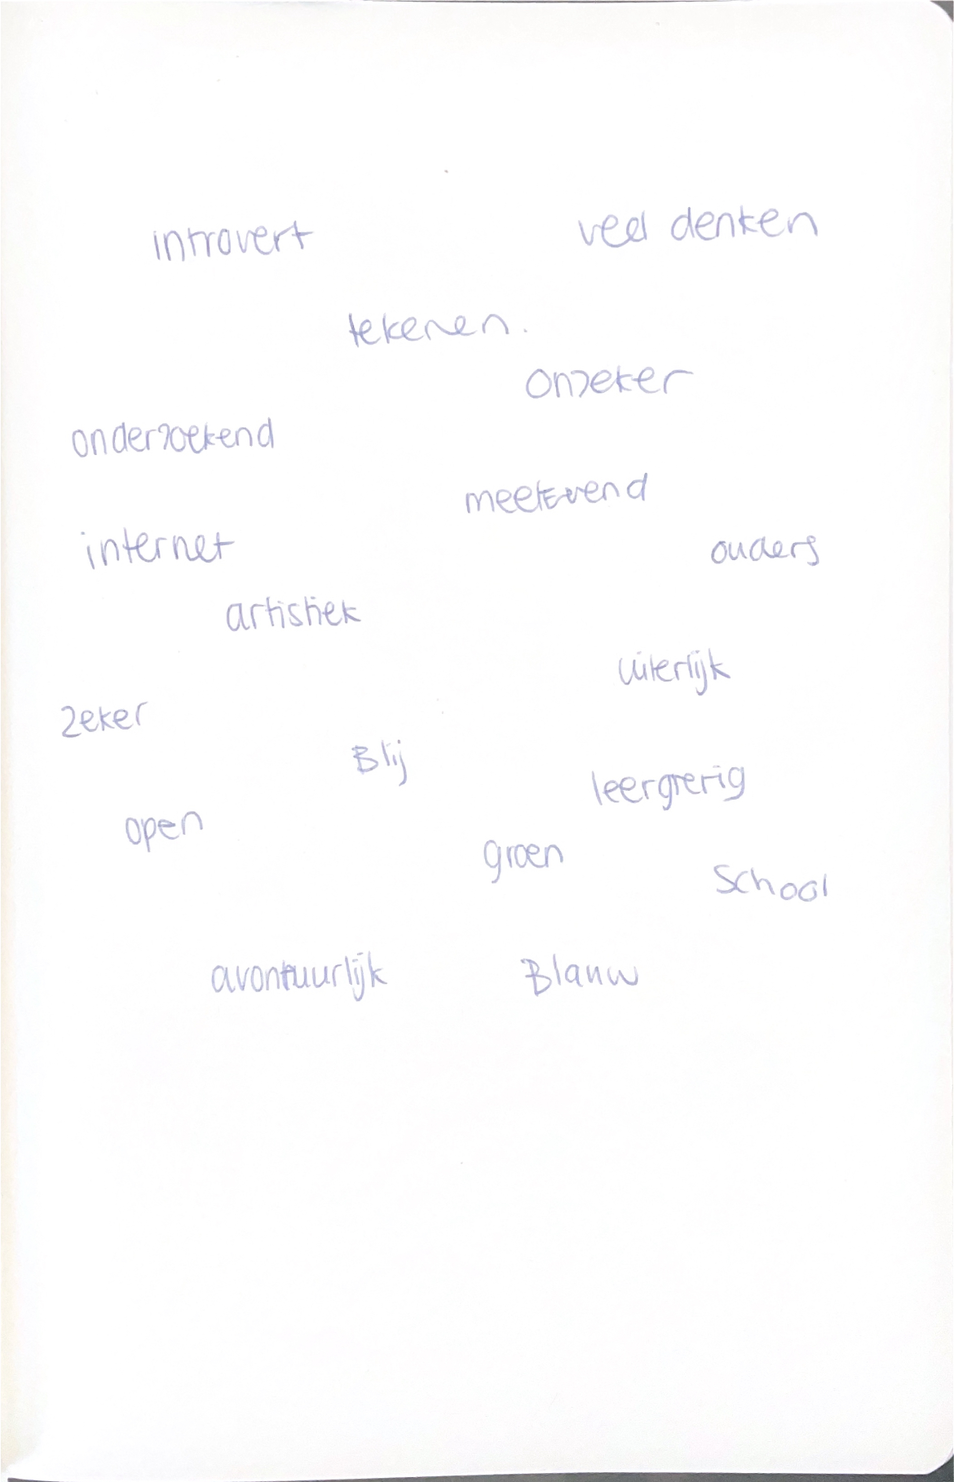 introvert
veel denken
tekenen.
onzeker
onderzoekend
meelevend
internet
ouders
artistiek
uiterlijk
zeker
Blij
leergierig
open
groen
School
avontuurlijk
Blauw